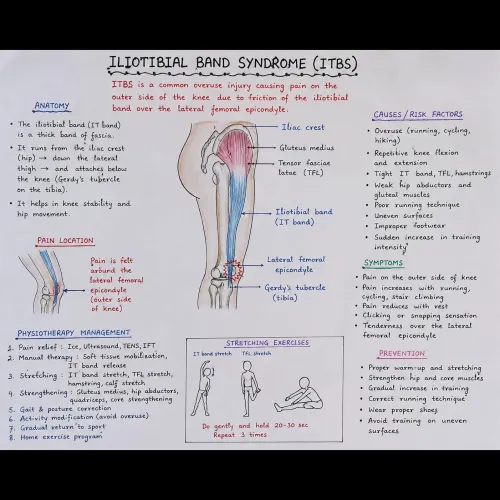 ILIOTIBIAL BAND SYNDROME (ITBS)
ITBS is a common overuse injury causing pain on the
outer side of the knee due to friction of the iliotibial
band over the lateral femoral epicondyle.
ANATOMY
• The iliotibial band (IT band)
is a thick band of fascia.
• It runs from the iliac crest
(hip) → down the lateral
thigh → and attaches below
the knee (Gerdy's tubercle
on the tibia).
• It helps in knee stability and
hip movement.
PAIN LOCATION
Pain is felt
around the
lateral femoral
epicondyle
(outer side
of knee)
Iliac crest
Gluteus medius
Tensor fasciae
latae (TFL)
Iliotibial band
(IT band)
Lateral femoral
epicondyle
Gerdy's tubercle
(tibia)
CAUSES/RISK FACTORS
• Overuse (running, cycling,
hiking)
• Repetitive knee flexion
and extension
• Tight IT band, TFL, hamstrings
• Weak hip abductors and
gluteal muscles
• Poor running technique
• Uneven surfaces
• Improper footwear
• Sudden increase in training
intensity
SYMPTOMS
• Pain on the outer side of knee
• Pain increases with running,
cycling, stair climbing
• Pain reduces with rest
• Clicking or snapping sensation
• Tenderness over the lateral
femoral epicondyle
PREVENTION
• Proper warm-up and stretching
• Strengthen hip and core muscles
• Gradual increase in training
• Correct running technique
• Wear proper shoes
• Avoid training on uneven
surfaces
PHYSIOTHERAPY MANAGEMENT
1. Pain relief : Ice, Ultrasound, TENS, IFT
2. Manual therapy : Soft tissue mobilization,
IT band release
3. Stretching : IT band stretch, TFL stretch,
hamstring, calf stretch
4. Strengthening : Gluteus medius, hip abductors,
quadriceps, core strengthening
5. Gait & posture correction
6. Activity modification (avoid overuse)
7. Gradual return to sport
8. Home exercise program
STRETCHING EXERCISES
IT band stretch TFL stretch
Do gently and hold 20-30 sec
Repeat 3 times